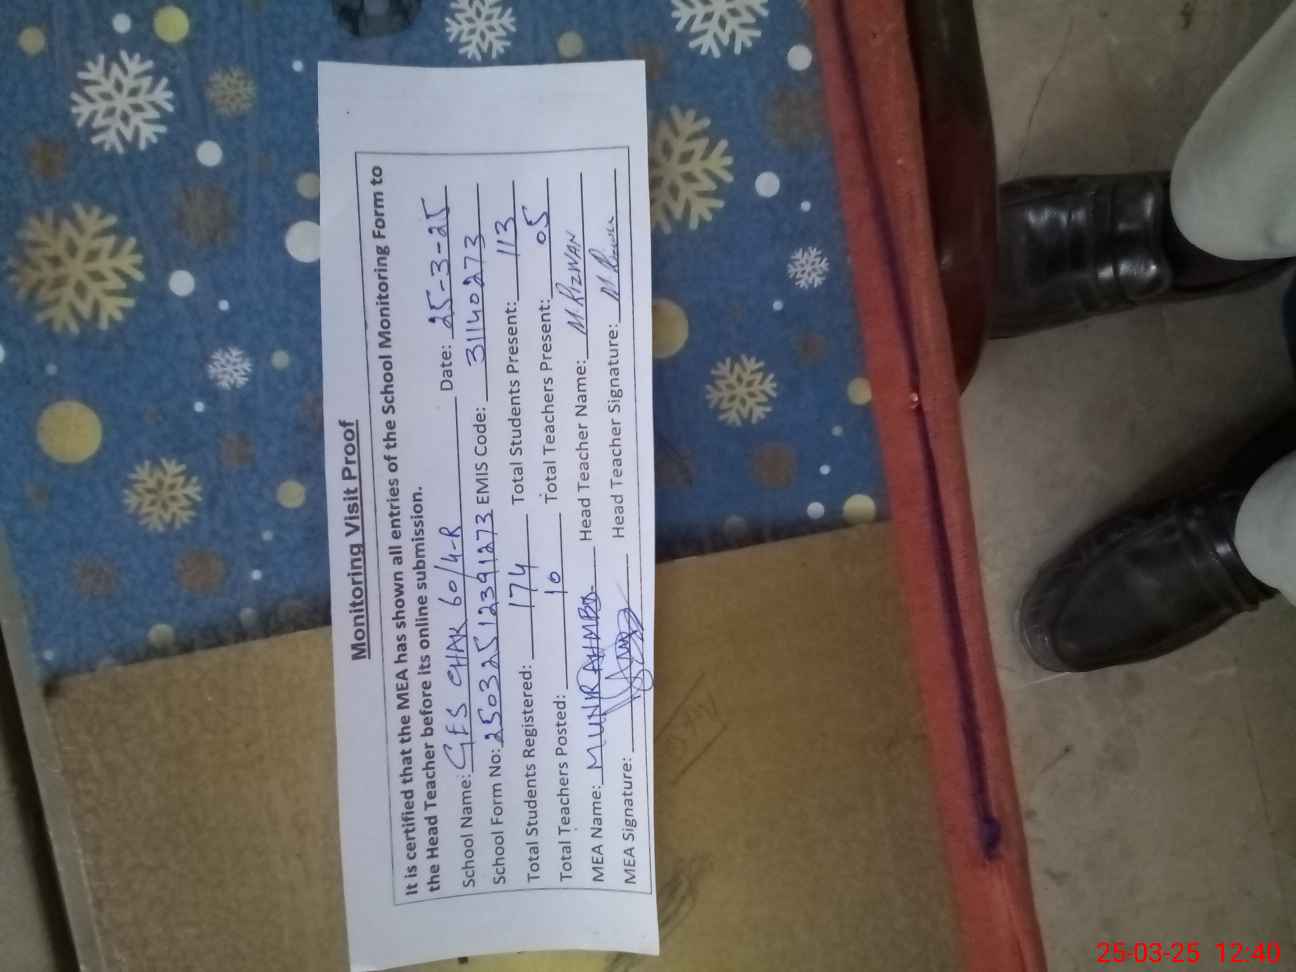 Monitoring Visit Proof
It is certified that the MEA has shown all entries of the School Monitoring Form to
the Head Teacher before its online submission.
School Name: GES CHAK 60/4-R Date: 25-3-25
School Form No: 25032512391273 EMIS Code: 31140273
Total Students Registered: 174 Total Students Present: 113
Total Teachers Posted: 10 Total Teachers Present: 05
MEA Name: MUNIR AHMED Head Teacher Name: M. RIZWAN
MEA Signature: Head Teacher Signature: M. Rizwan
25-03-25 12:40